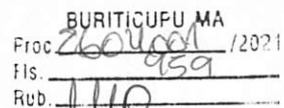 BURITICUPU MA
Proc. 2604001 /2021
Fls. 959
Rub.